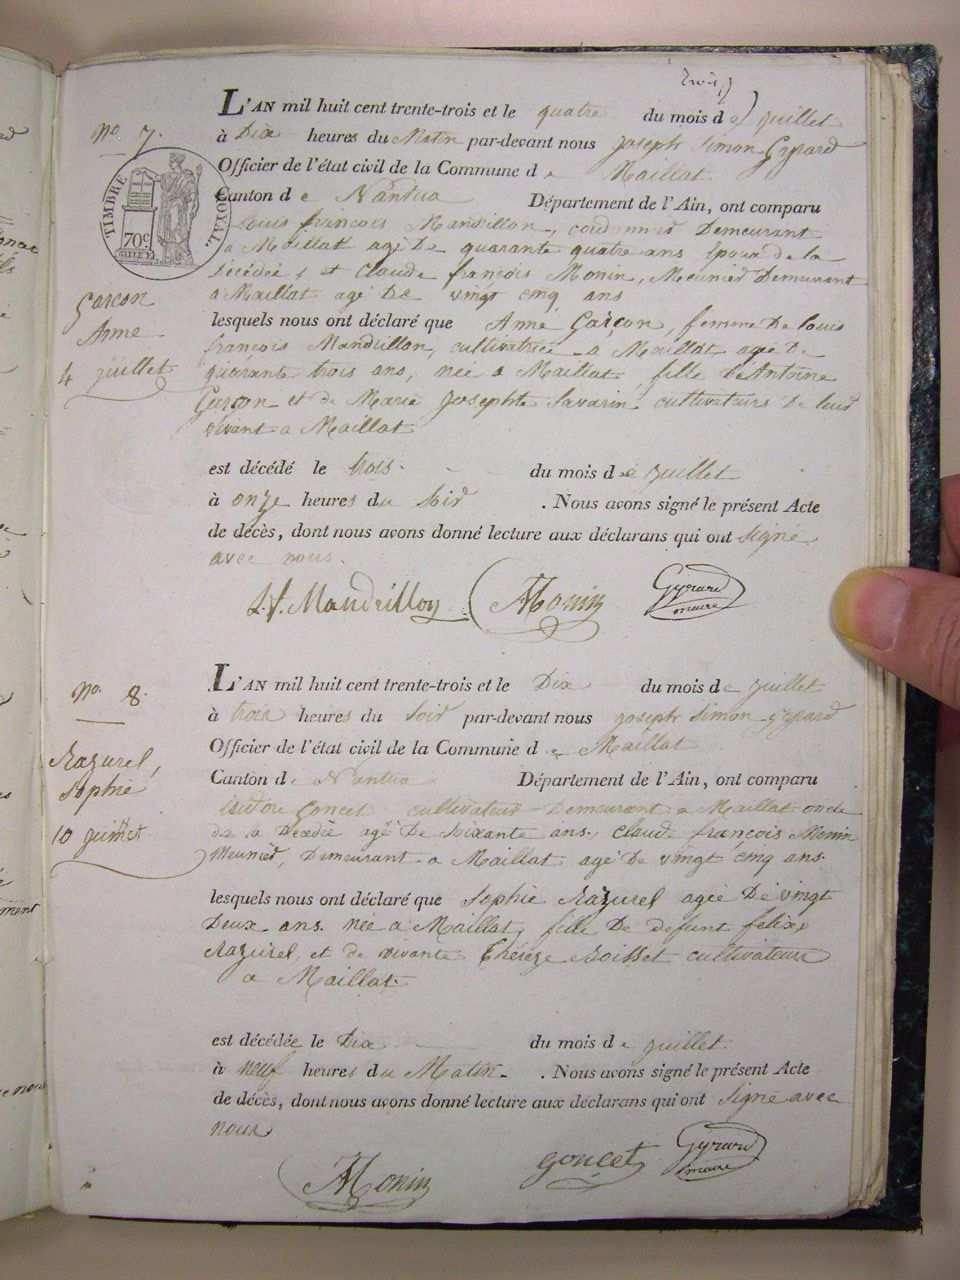 trois
L'AN mil huit cent trente-trois et le quatre du mois de juillet
No. 7.
à Dix heures du Matin par-devant nous joseph Simon Gyrard
Officier de l'état civil de la Commune de Maillat
TIMBRE ROYAL
70c
Canton de Nantua Département de l'Ain, ont comparu
Louis françois Mandrillon, cordonnier Demeurant
a Maillat agé De quarante quatre ans Epoux de la
Décédée, et Claude françois Monin, Meunier Demeurant
a Maillat agé De vingt cinq ans
Garçon
Anne
4 juillet
lesquels nous ont déclaré que Anne Garçon, femme De louis
françois Mandrillon, cultivatrice a Maillat agée De
quarante trois ans, née a Maillat, fille De Antoine
Garçon et de Marie Josephte Savarin cultivateurs De leur
vivant a Maillat
est décédé le trois du mois de juillet
à onze heures du Soir . Nous avons signé le présent Acte
de décès, dont nous avons donné lecture aux déclarans qui ont Signé
avec nous.
L.f. Mandrillon Monin Gyrard
maire
No. 8.
L'AN mil huit cent trente-trois et le Dix du mois de juillet
à trois heures du Soir par-devant nous joseph Simon gyrard
Officier de l'état civil de la Commune de Maillat
Canton de Nantua Département de l'Ain, ont comparu
Razurel,
Sophie
10 juillet
isidore goncet cultivateur Demeurant a Maillat oncle
de la Décédée agé De Soixante ans, claude françois Monin
Meunier, Demeurant a Maillat agé De vingt cinq ans.
lesquels nous ont déclaré que Sophie Razurel agée De vingt
Deux ans née a Maillat, fille De defunt felix
Razurel, et de vivante Thérèze Boisset cultivateurs
a Maillat
est décédée le Dix du mois de juillet
à neuf heures du Matin . Nous avons signé le présent Acte
de décès, dont nous avons donné lecture aux déclarans qui ont Signé avec
nous
Monin goncet Gyrard
maire